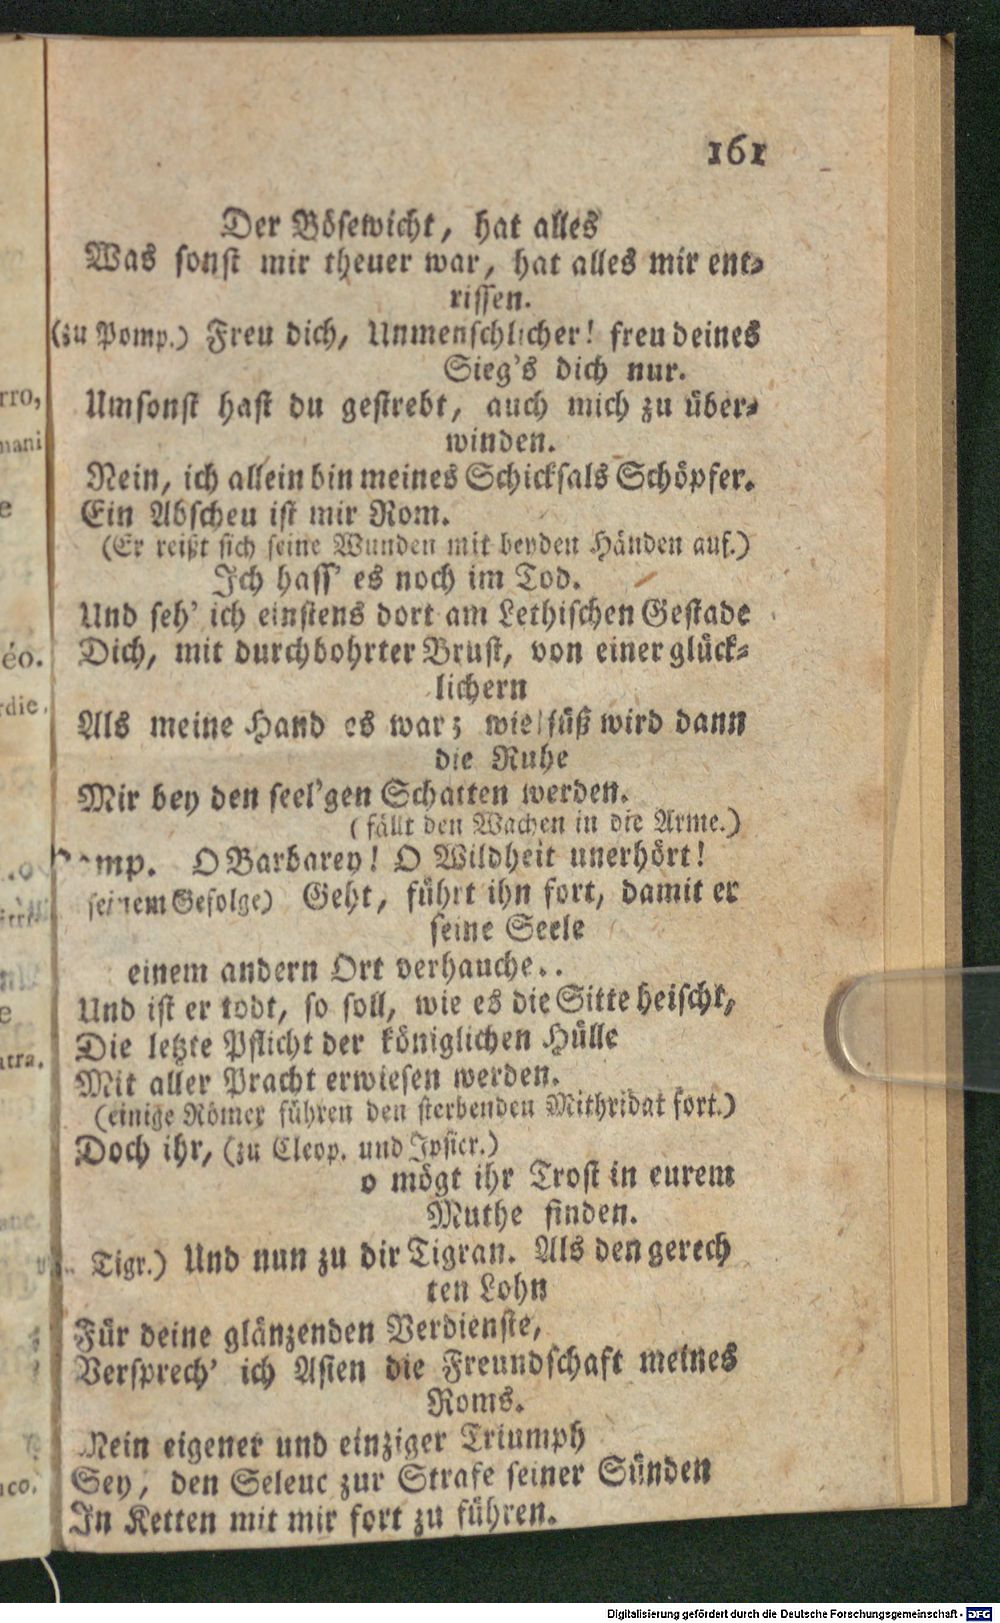 161
Der Bösewicht, hat alles
Was sonst mir theuer war, hat alles mir ent-
rissen.
(zu Pomp.) Freu dich, Unmenschlicher! freu deines
Sieg's dich nur.
Umsonst hast du gestrebt, auch mich zu über-
winden.
Nein, ich allein bin meines Schicksals Schöpfer.
Ein Abscheu ist mir Rom.
(Er reißt sich seine Wunden mit beyden Händen auf.)
Ich hass' es noch im Tod.
Und seh' ich einstens dort am Lethischen Gestade
Dich, mit durchbohrter Brust, von einer glück-
lichern
Als meine Hand es war; wie süß wird dann
die Ruhe
Mir bey den seel'gen Schatten werden.
(fällt den Wachen in die Arme.)
Pomp. O Barbarey! O Wildheit unerhört!
seinem Gefolge) Geht, führt ihn fort, damit er
seine Seele
einem andern Ort verhauche..
Und ist er todt, so soll, wie es die Sitte heischt,
Die letzte Pflicht der königlichen Hülle
Mit aller Pracht erwiesen werden.
(einige Römer führen den sterbenden Mithridat fort.)
Doch ihr, (zu Cleop. und Ipsicr.)
o mögt ihr Trost in eurem
Muthe finden.
Tigr.) Und nun zu dir Tigran. Als den gerech
ten Lohn
Für deine glänzenden Verdienste,
Versprech' ich Asien die Freundschaft meines
Roms.
Mein eigener und einziger Triumph
Sey, den Seleuc zur Strafe seiner Sünden
In Ketten mit mir fort zu führen.
rro,
mani
e
éo.
rdie.
e
atra.
ane.
ico.
Digitalisierung gefördert durch die Deutsche Forschungsgemeinschaft - DFG